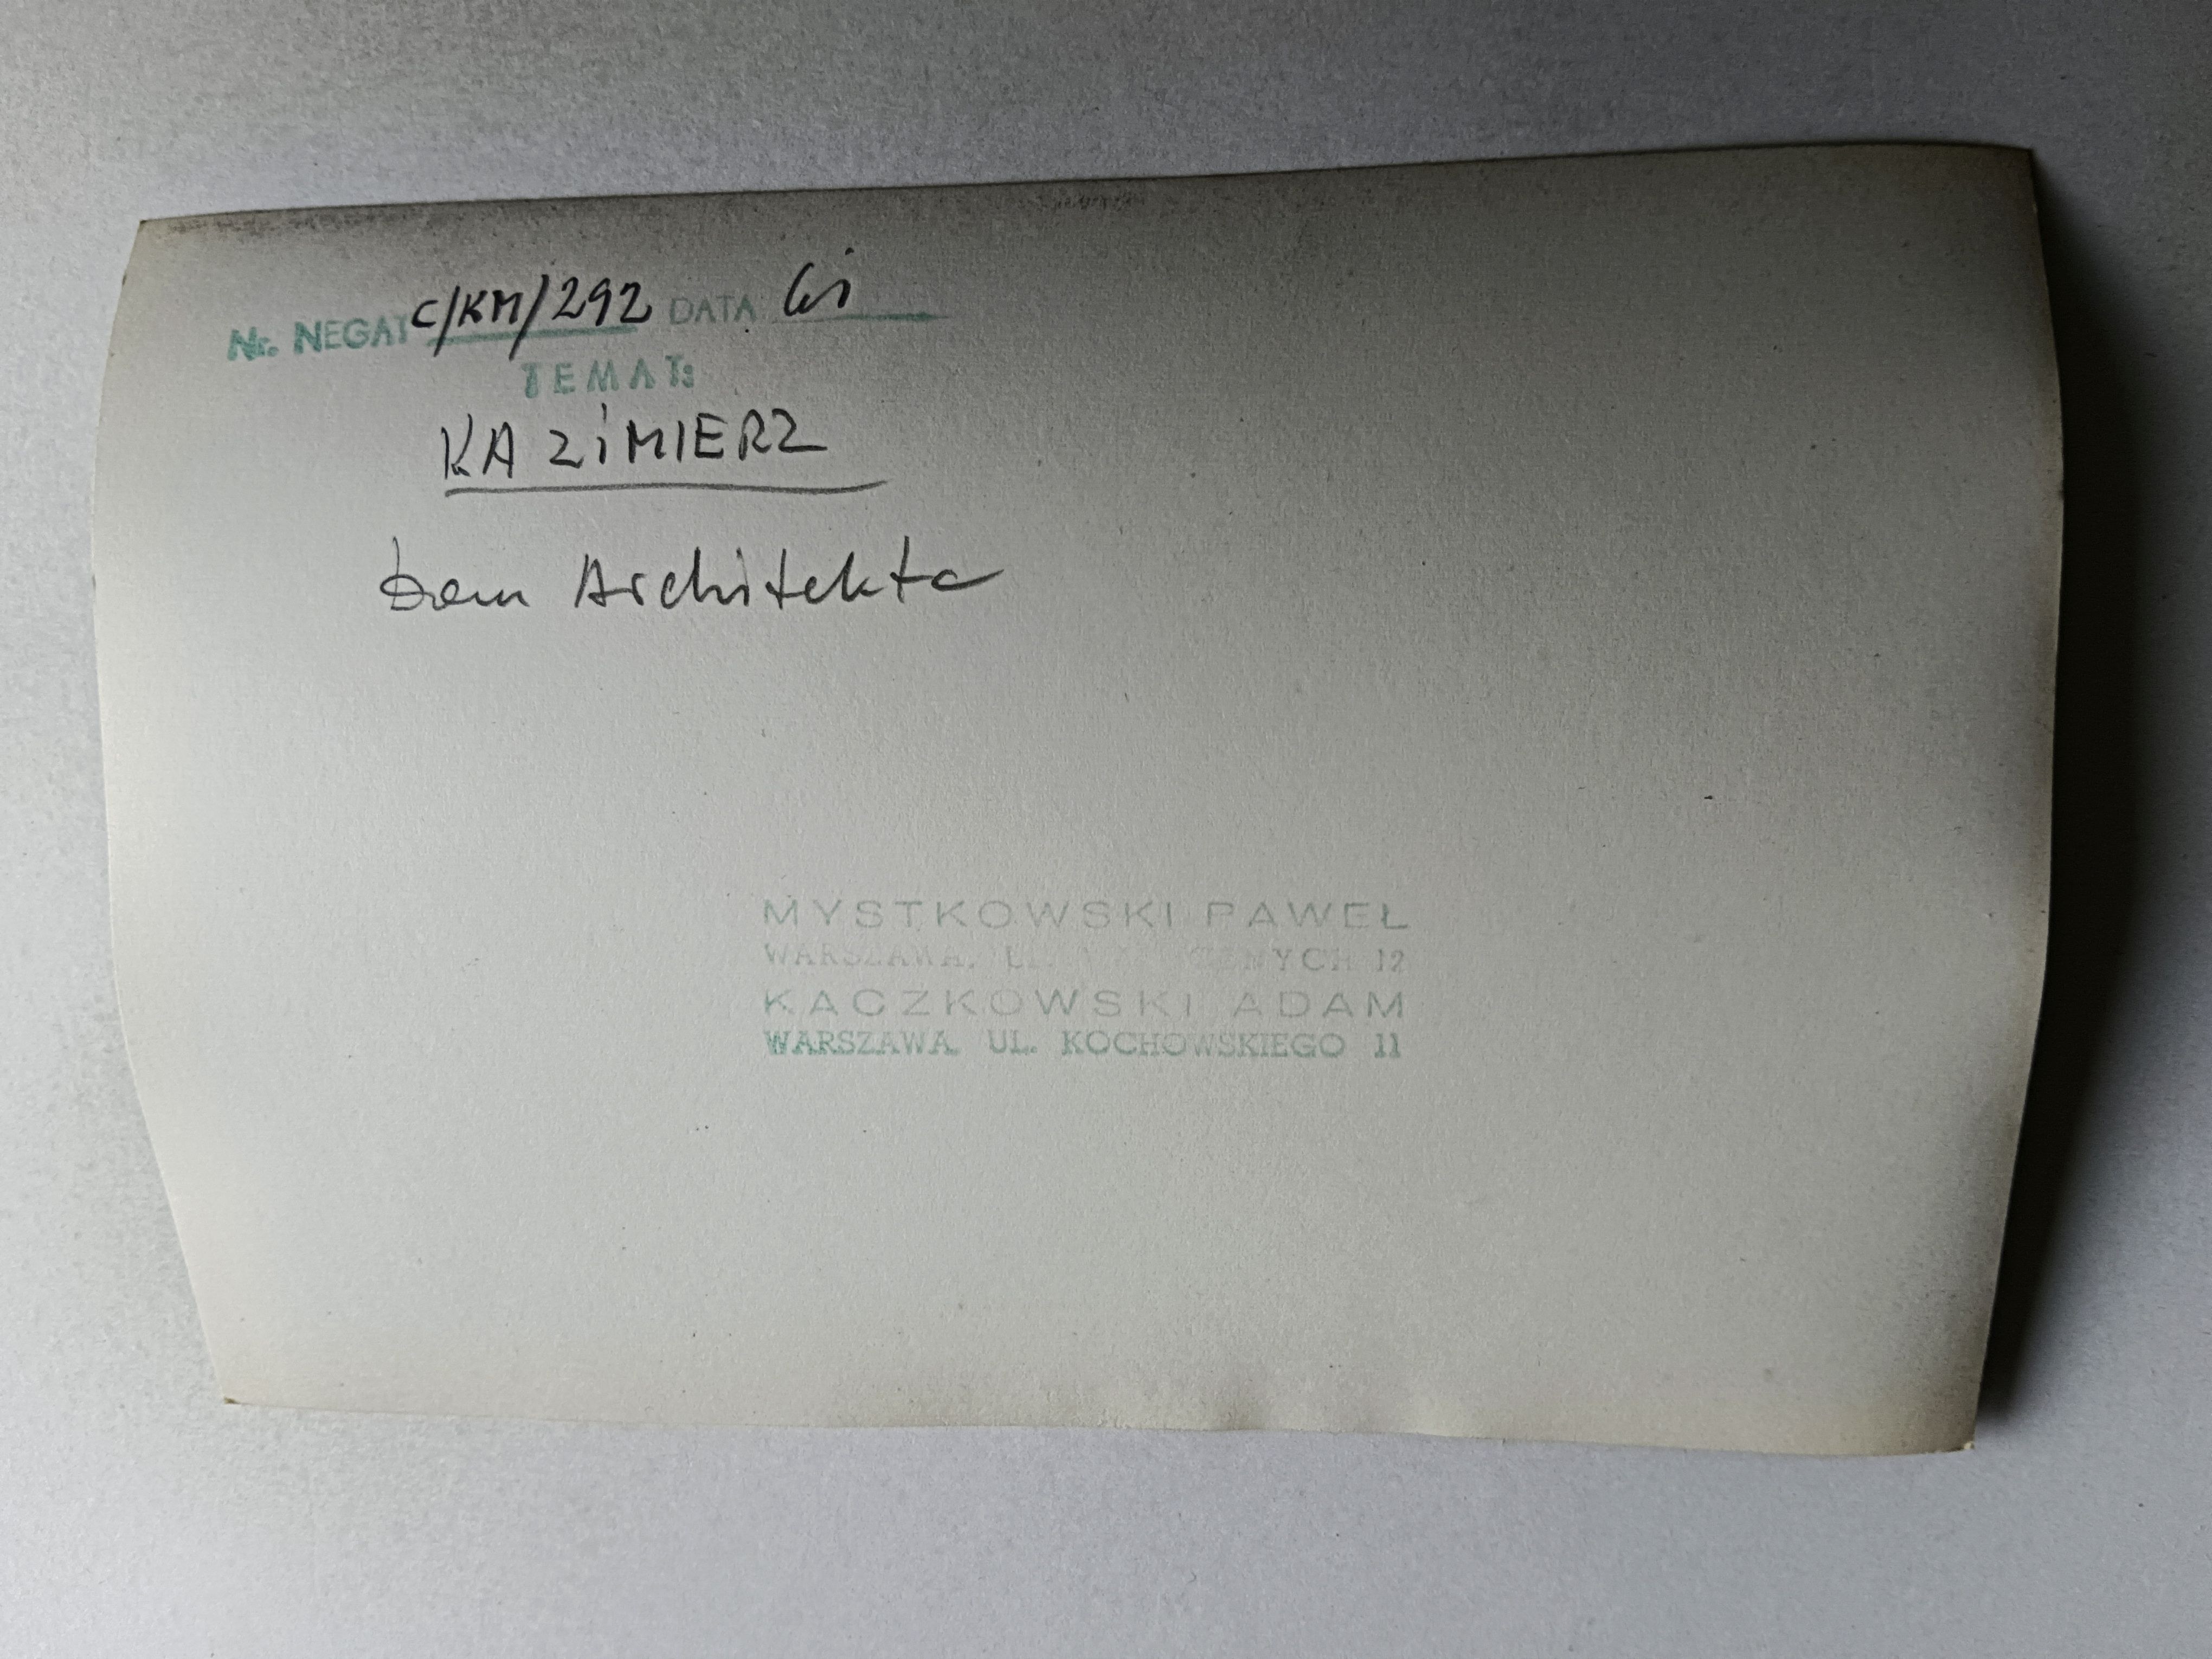 Nr. NEGAT C/KM/292 DATA
TEMAT:
KAZiMIERZ
Dom Architekta
MYSTKOWSKI PAWEŁ
WARSZAWA, UL. 12
KACZKOWSKI ADAM
WARSZAWA UL. KOCHOWSKIEGO 11